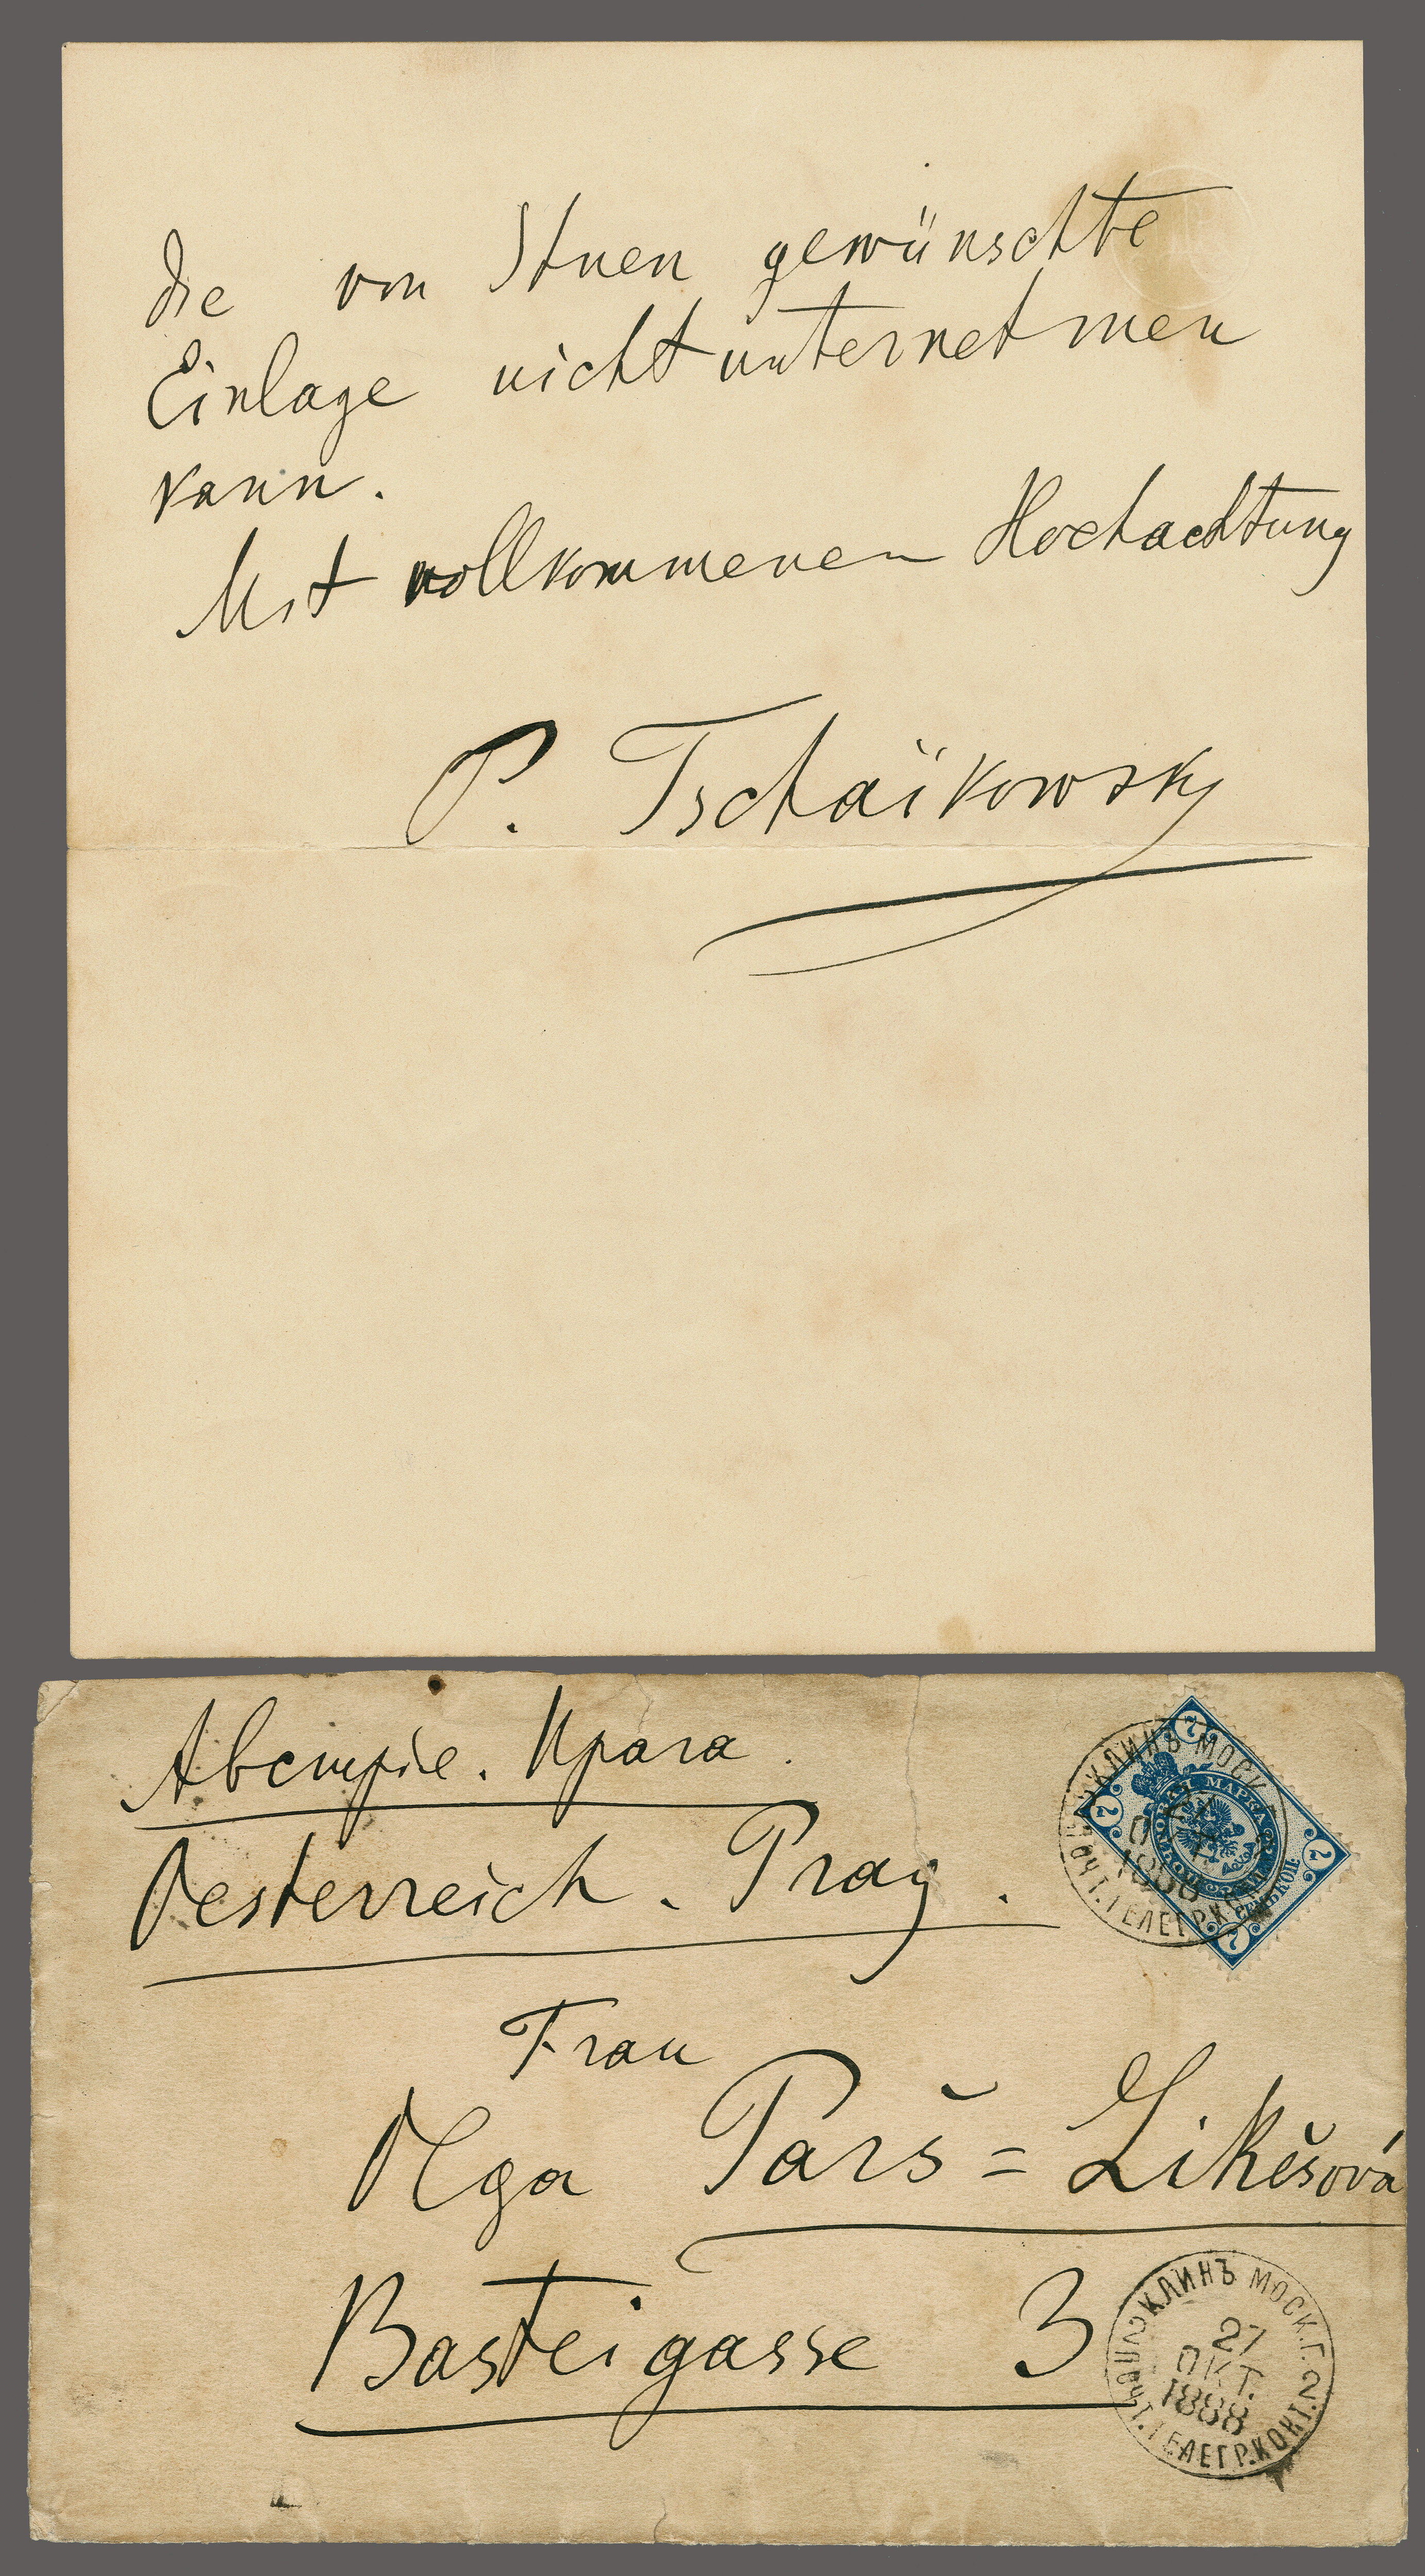 die von Ihnen gewünschte
Einlage nicht unternehmen
kann.
Mit vollkommenen Hochachtung
P. Tschaïkowsky
Австрiе. Прага.
Oesterreich. Prag.
Frau
Olga Parš=Likešová
Basteigasse 3
КЛИНЪ МОСК. Г. 2
ПОЧТ. ТЕЛЕГР. КОНТ.
1888
ПОЧТОВАЯ МАРКА
СЕМЬ КОП.
7
7
7
7
КЛИНЪ МОСК. Г. 2
27
ОКТ.
1888
ПОЧТ. ТЕЛЕГР. КОНТ. 2